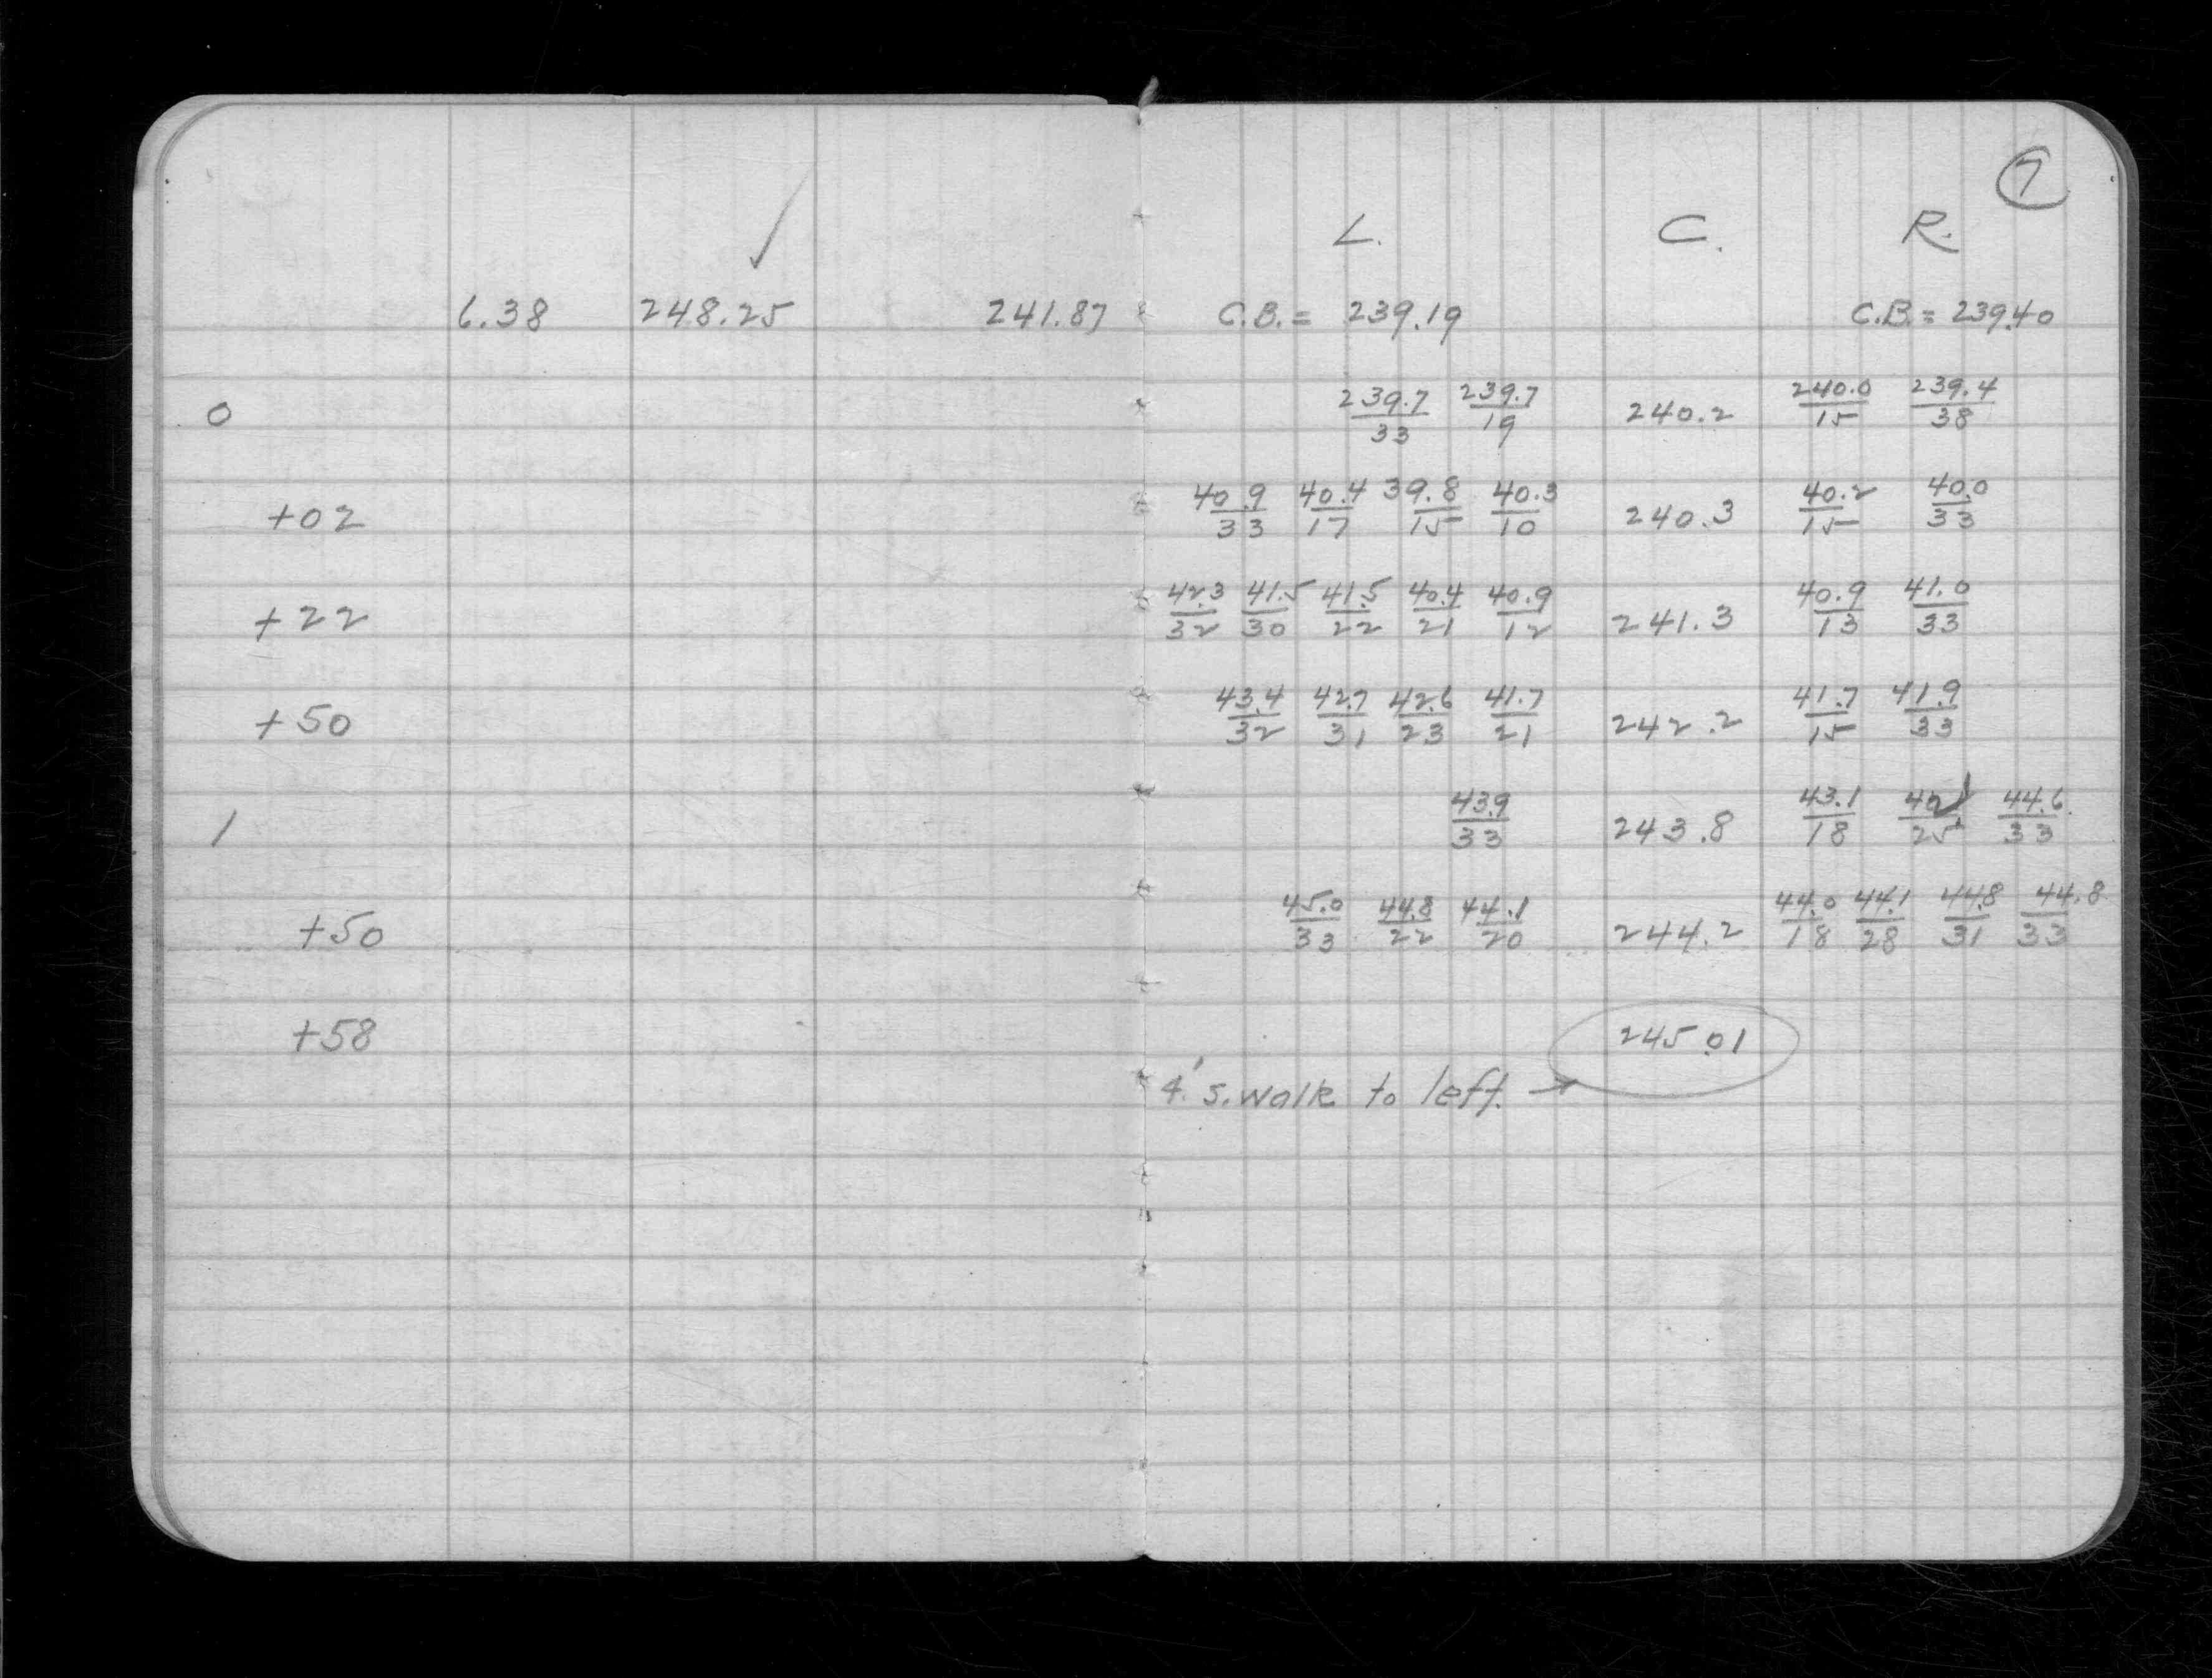 7
L. C. R.
6.38 248.25 241.87 C.B. = 239.19 C.B. = 239.40
0 239.7/33 239.7/19 240.2 240.0/15 239.4/38
+02 40.9/33 40.4/17 39.8/15 40.3/10 240.3 40.2/15 40.0/33
+22 42.3/32 41.5/30 41.5/22 40.4/21 40.9/12 241.3 40.9/13 41.0/33
+50 43.4/32 42.7/31 42.6/23 41.7/21 242.2 41.7/15 41.9/33
1 43.9/33 243.8 43.1/18 44.6/33
+50 45.0/33 44.8/22 44.1/20 244.2 44.0/18 44.1/28 44.8/31 44.8/33
+58 245.01
4' s. walk to left →